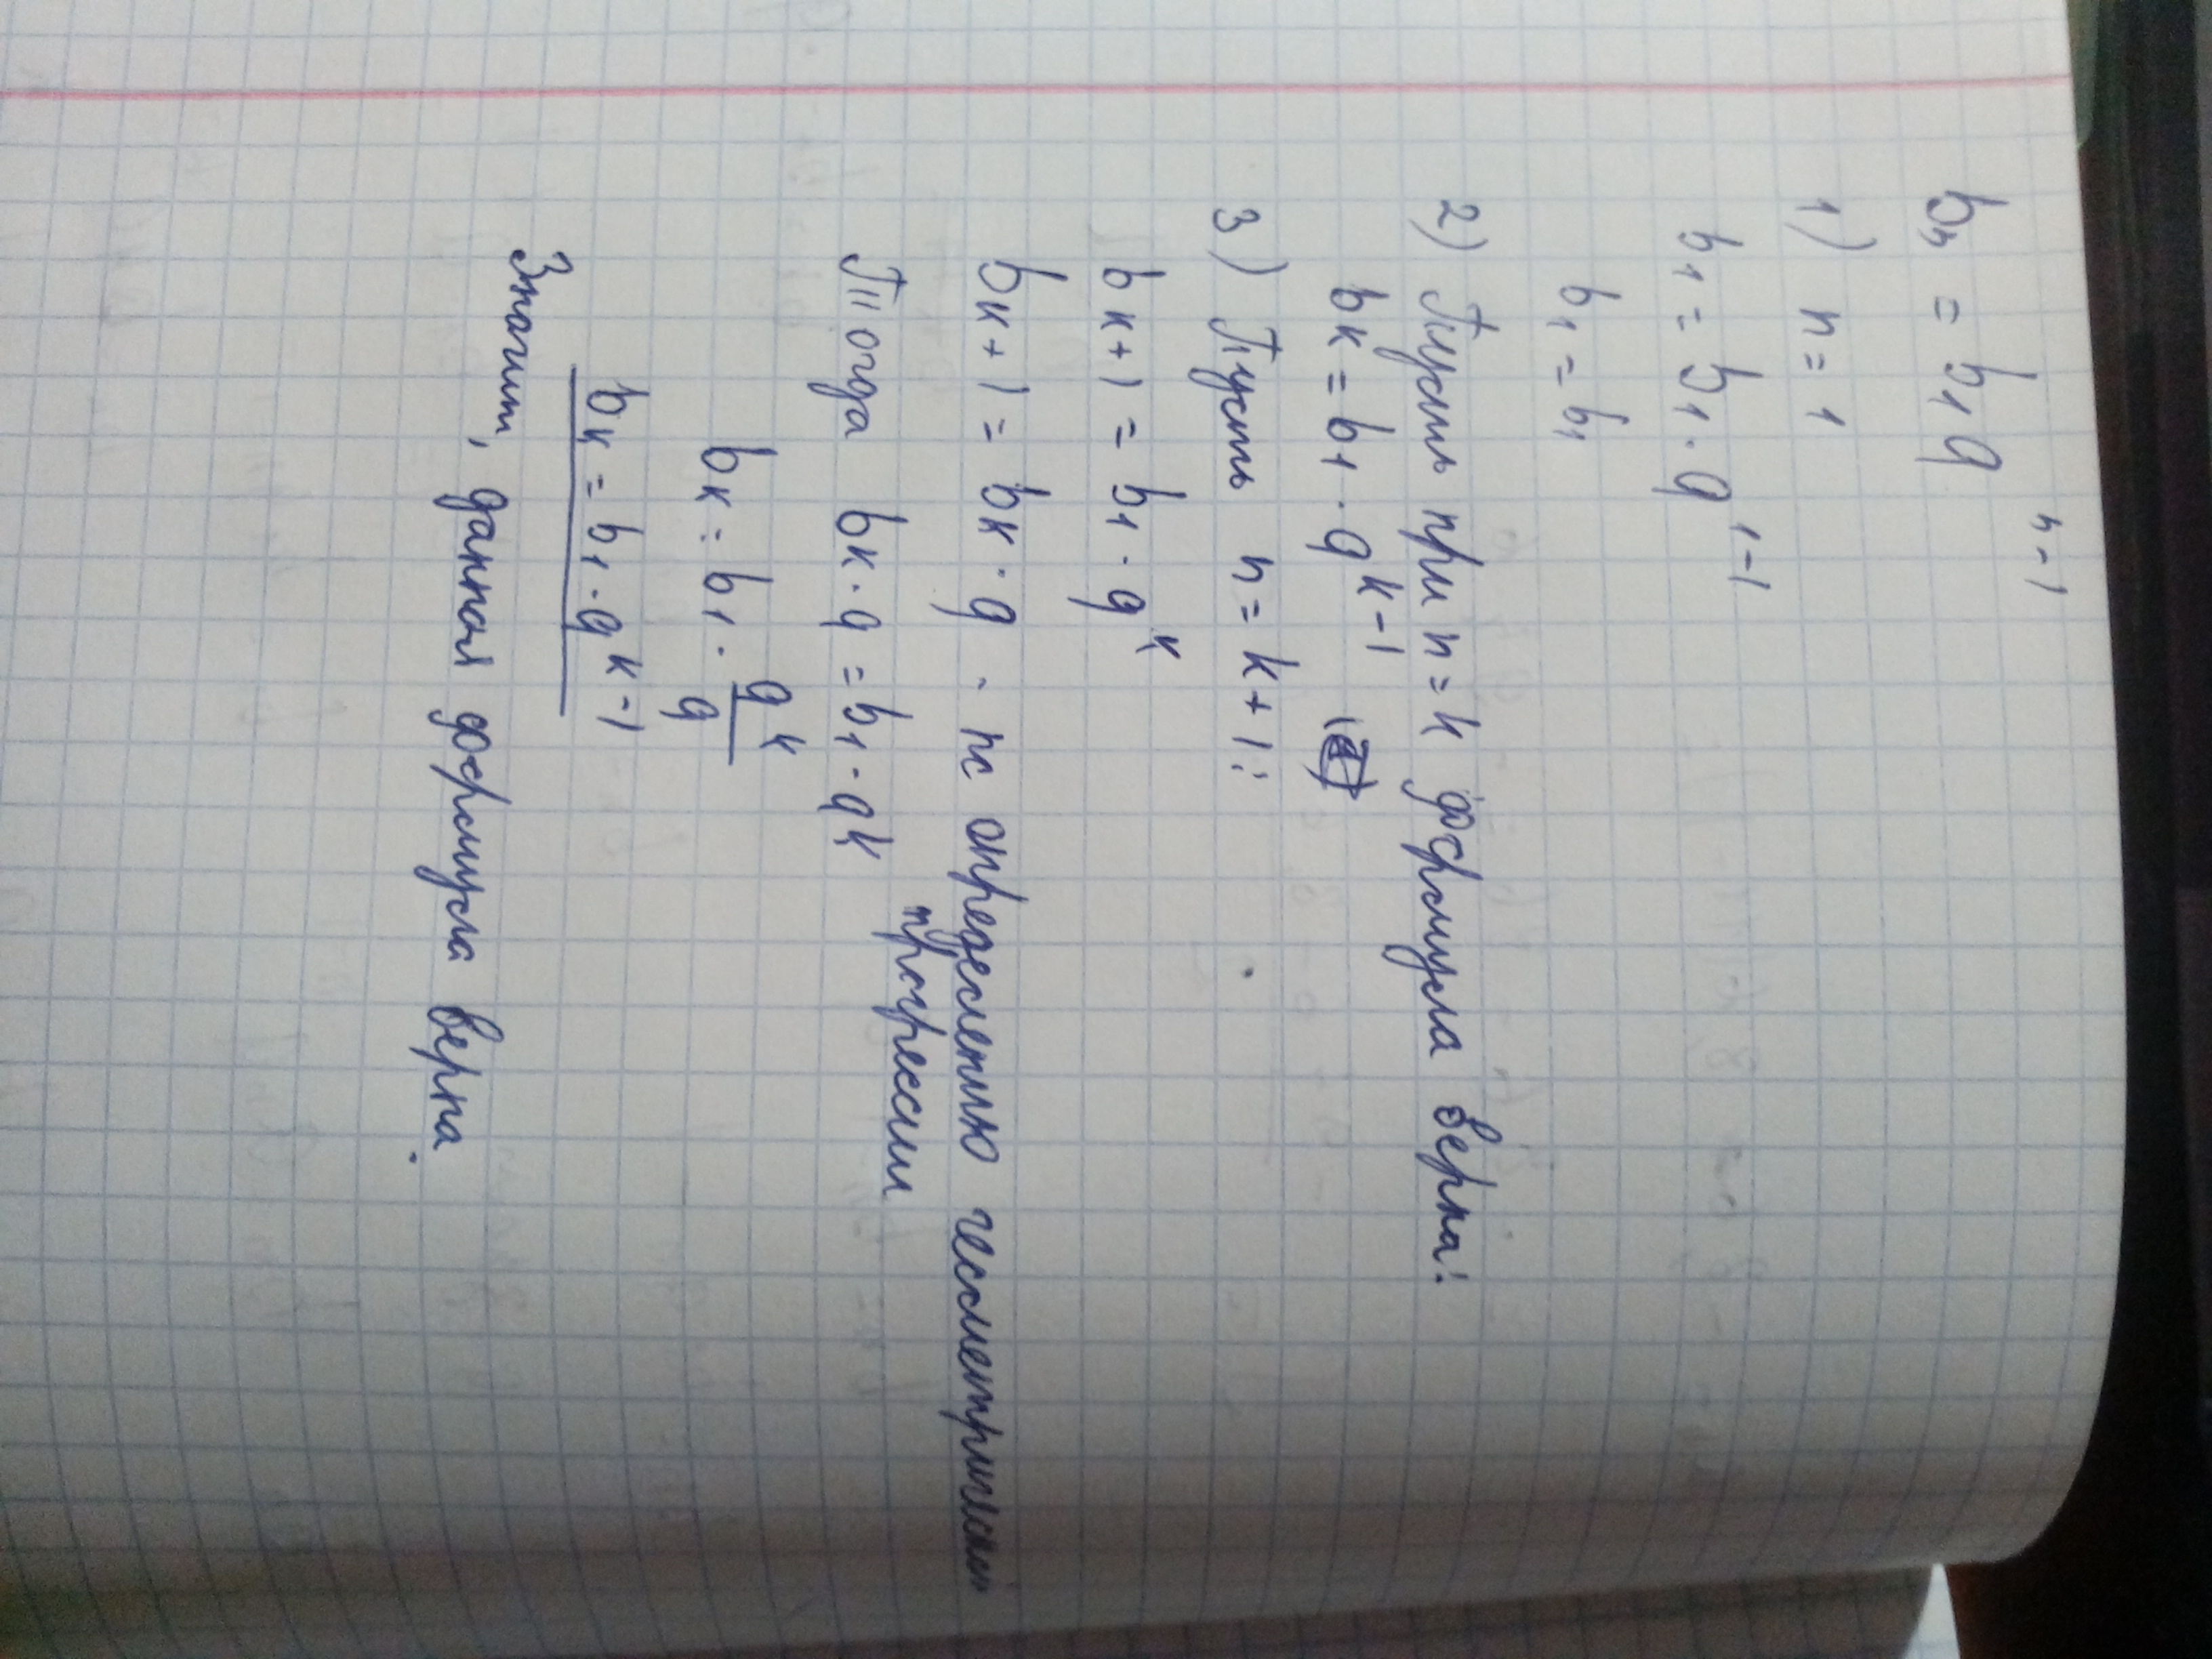 bₙ = b₁q^(n-1)
1) n = 1
b₁ = b₁ · q^(1-1)
b₁ = b₁
2) Пусть при n = k формула верна:
bк = b₁ · q^(k-1)
3) Пусть n = k + 1:
bк+1 = b₁ · q^к
bк+1 = bк · q - по определению геометрической
прогрессии
Тогда bк · q = b₁ · q^k
bк = b₁ · q^к/q
bк = b₁ · q^(к-1)
Значит, данная формула верна.